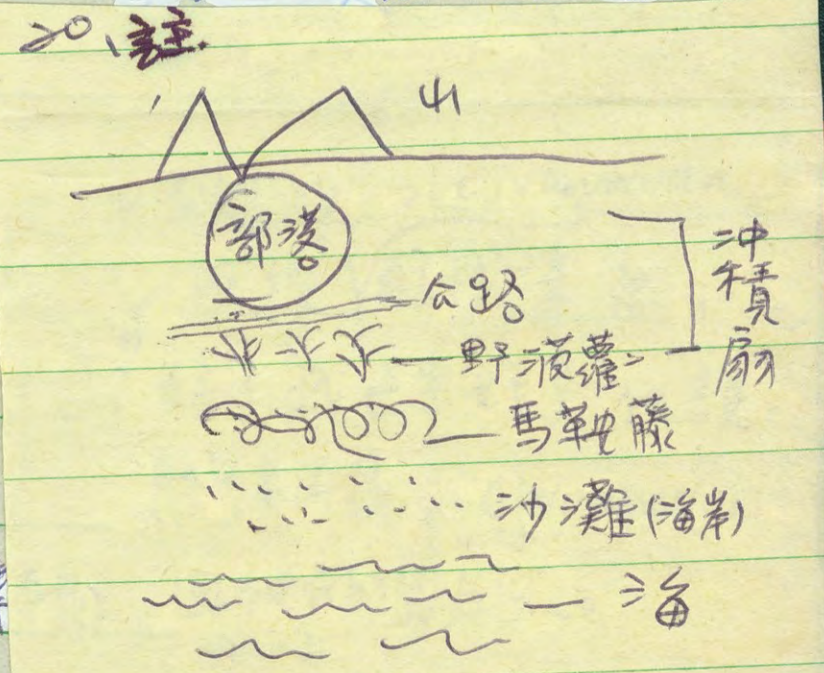 20、註.
山
部落
公路
沖積扇
野菠蘿
馬鞍藤
沙灘(海岸)
海